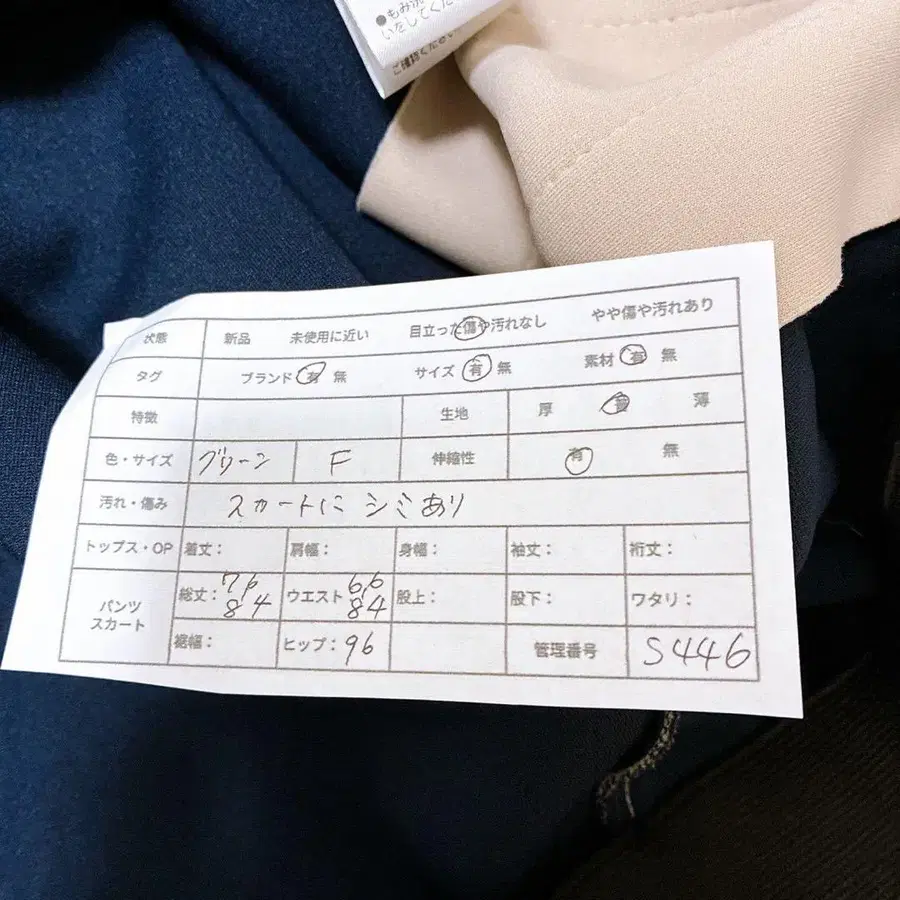 ●もみ洗
いをしてくだ
ご確認ください
状態 新品 未使用に近い 目立った傷や汚れなし やや傷や汚れあり
タグ ブランド 有 無 サイズ 有 無 素材 有 無
特徴 生地 厚 普 薄
色・サイズ グリーン F 伸縮性 有 無
汚れ・傷み スカートに シミあり
トップス・OP 着丈: 肩幅: 身幅: 袖丈: 裄丈:
パンツ スカート 総丈: 76 84 ウエスト 66 84 股上: 股下: ワタリ:
裾幅: ヒップ: 96 管理番号 S446